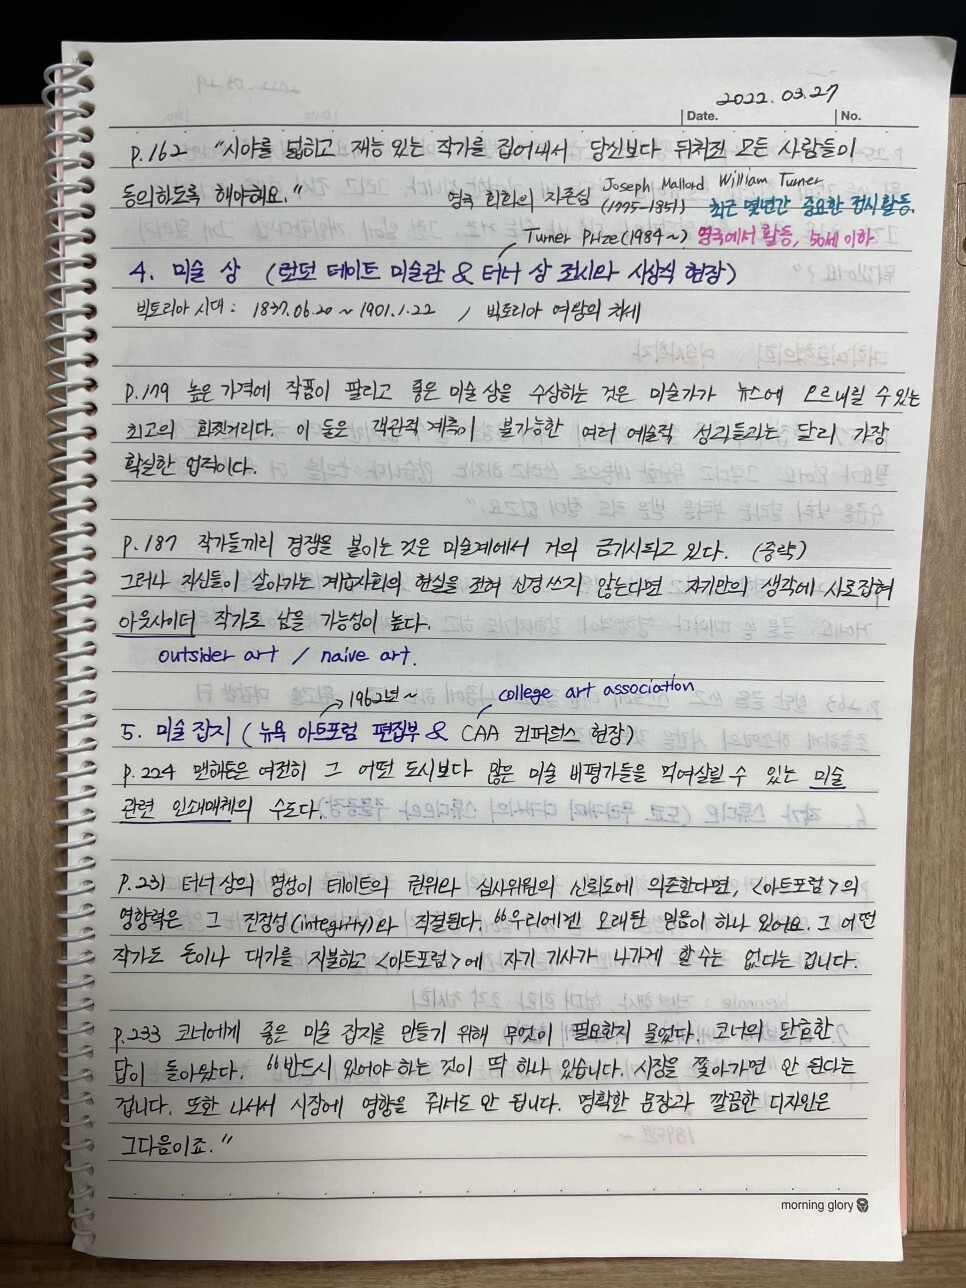 2022.03.27
Date.
No.
p.162 "시야를 넓히고 재능 있는 작가를 집어내서 당신보다 뒤처진 모든 사람들이
동의하도록 해야해요."
영국 회화의 자존심 Joseph Mallord William Turner
(1775-1851) 최근 몇년간 중요한 전시 활동.
Turner Prize(1984~) 영국에서 활동, 50세 이하
4. 미술 상 (런던 테이트 미술관 & 터너 상 전시와 시상식 현장)
빅토리아 시대 : 1837.06.20~1901.1.22 / 빅토리아 여왕의 치세
p.179 높은 가격에 작품이 팔리고 좋은 미술 상을 수상하는 것은 미술가가 뉴스에 오르내릴 수 있는
최고의 화젯거리다. 이 둘은 객관적 계측이 불가능한 여러 예술적 성격들과는 달리 가장
확실한 업적이다.
p.187 작가들끼리 경쟁을 붙이는 것은 미술계에서 거의 금기시되고 있다. (중략)
그러나 자신들이 살아가는 계급사회의 현실을 전혀 신경 쓰지 않는다면 자기만의 생각에 사로잡혀
아웃사이더 작가로 남을 가능성이 높다.
outsider art / naive art.
1962년~ college art association
5. 미술 잡지 (뉴욕 아트포럼 편집부 & CAA 컨퍼런스 현장)
p.224 맨해튼은 여전히 그 어떤 도시보다 많은 미술 비평가들을 먹여살릴 수 있는 미술
관련 인쇄매체의 수도다.
p.231 터너 상의 명성이 테이트의 권위와 심사위원의 신뢰도에 의존한다면, <아트포럼>의
영향력은 그 진정성(integrity)와 직결된다. "우리에겐 오래된 믿음이 하나 있어요. 그 어떤
작가도 돈이나 대가를 지불하고 <아트포럼>에 자기 기사가 나가게 할 수는 없다는 겁니다.
p.233 코너에게 좋은 미술 잡지를 만들기 위해 무엇이 필요한지 물었다. 코너의 단호한
답이 돌아왔다. "반드시 있어야 하는 것이 딱 하나 있습니다. 시장을 쫓아가면 안 된다는
겁니다. 또한 나서서 시장에 영향을 줘서도 안 됩니다. 명확한 문장과 깔끔한 디자인은
그다음이죠."
morning glory